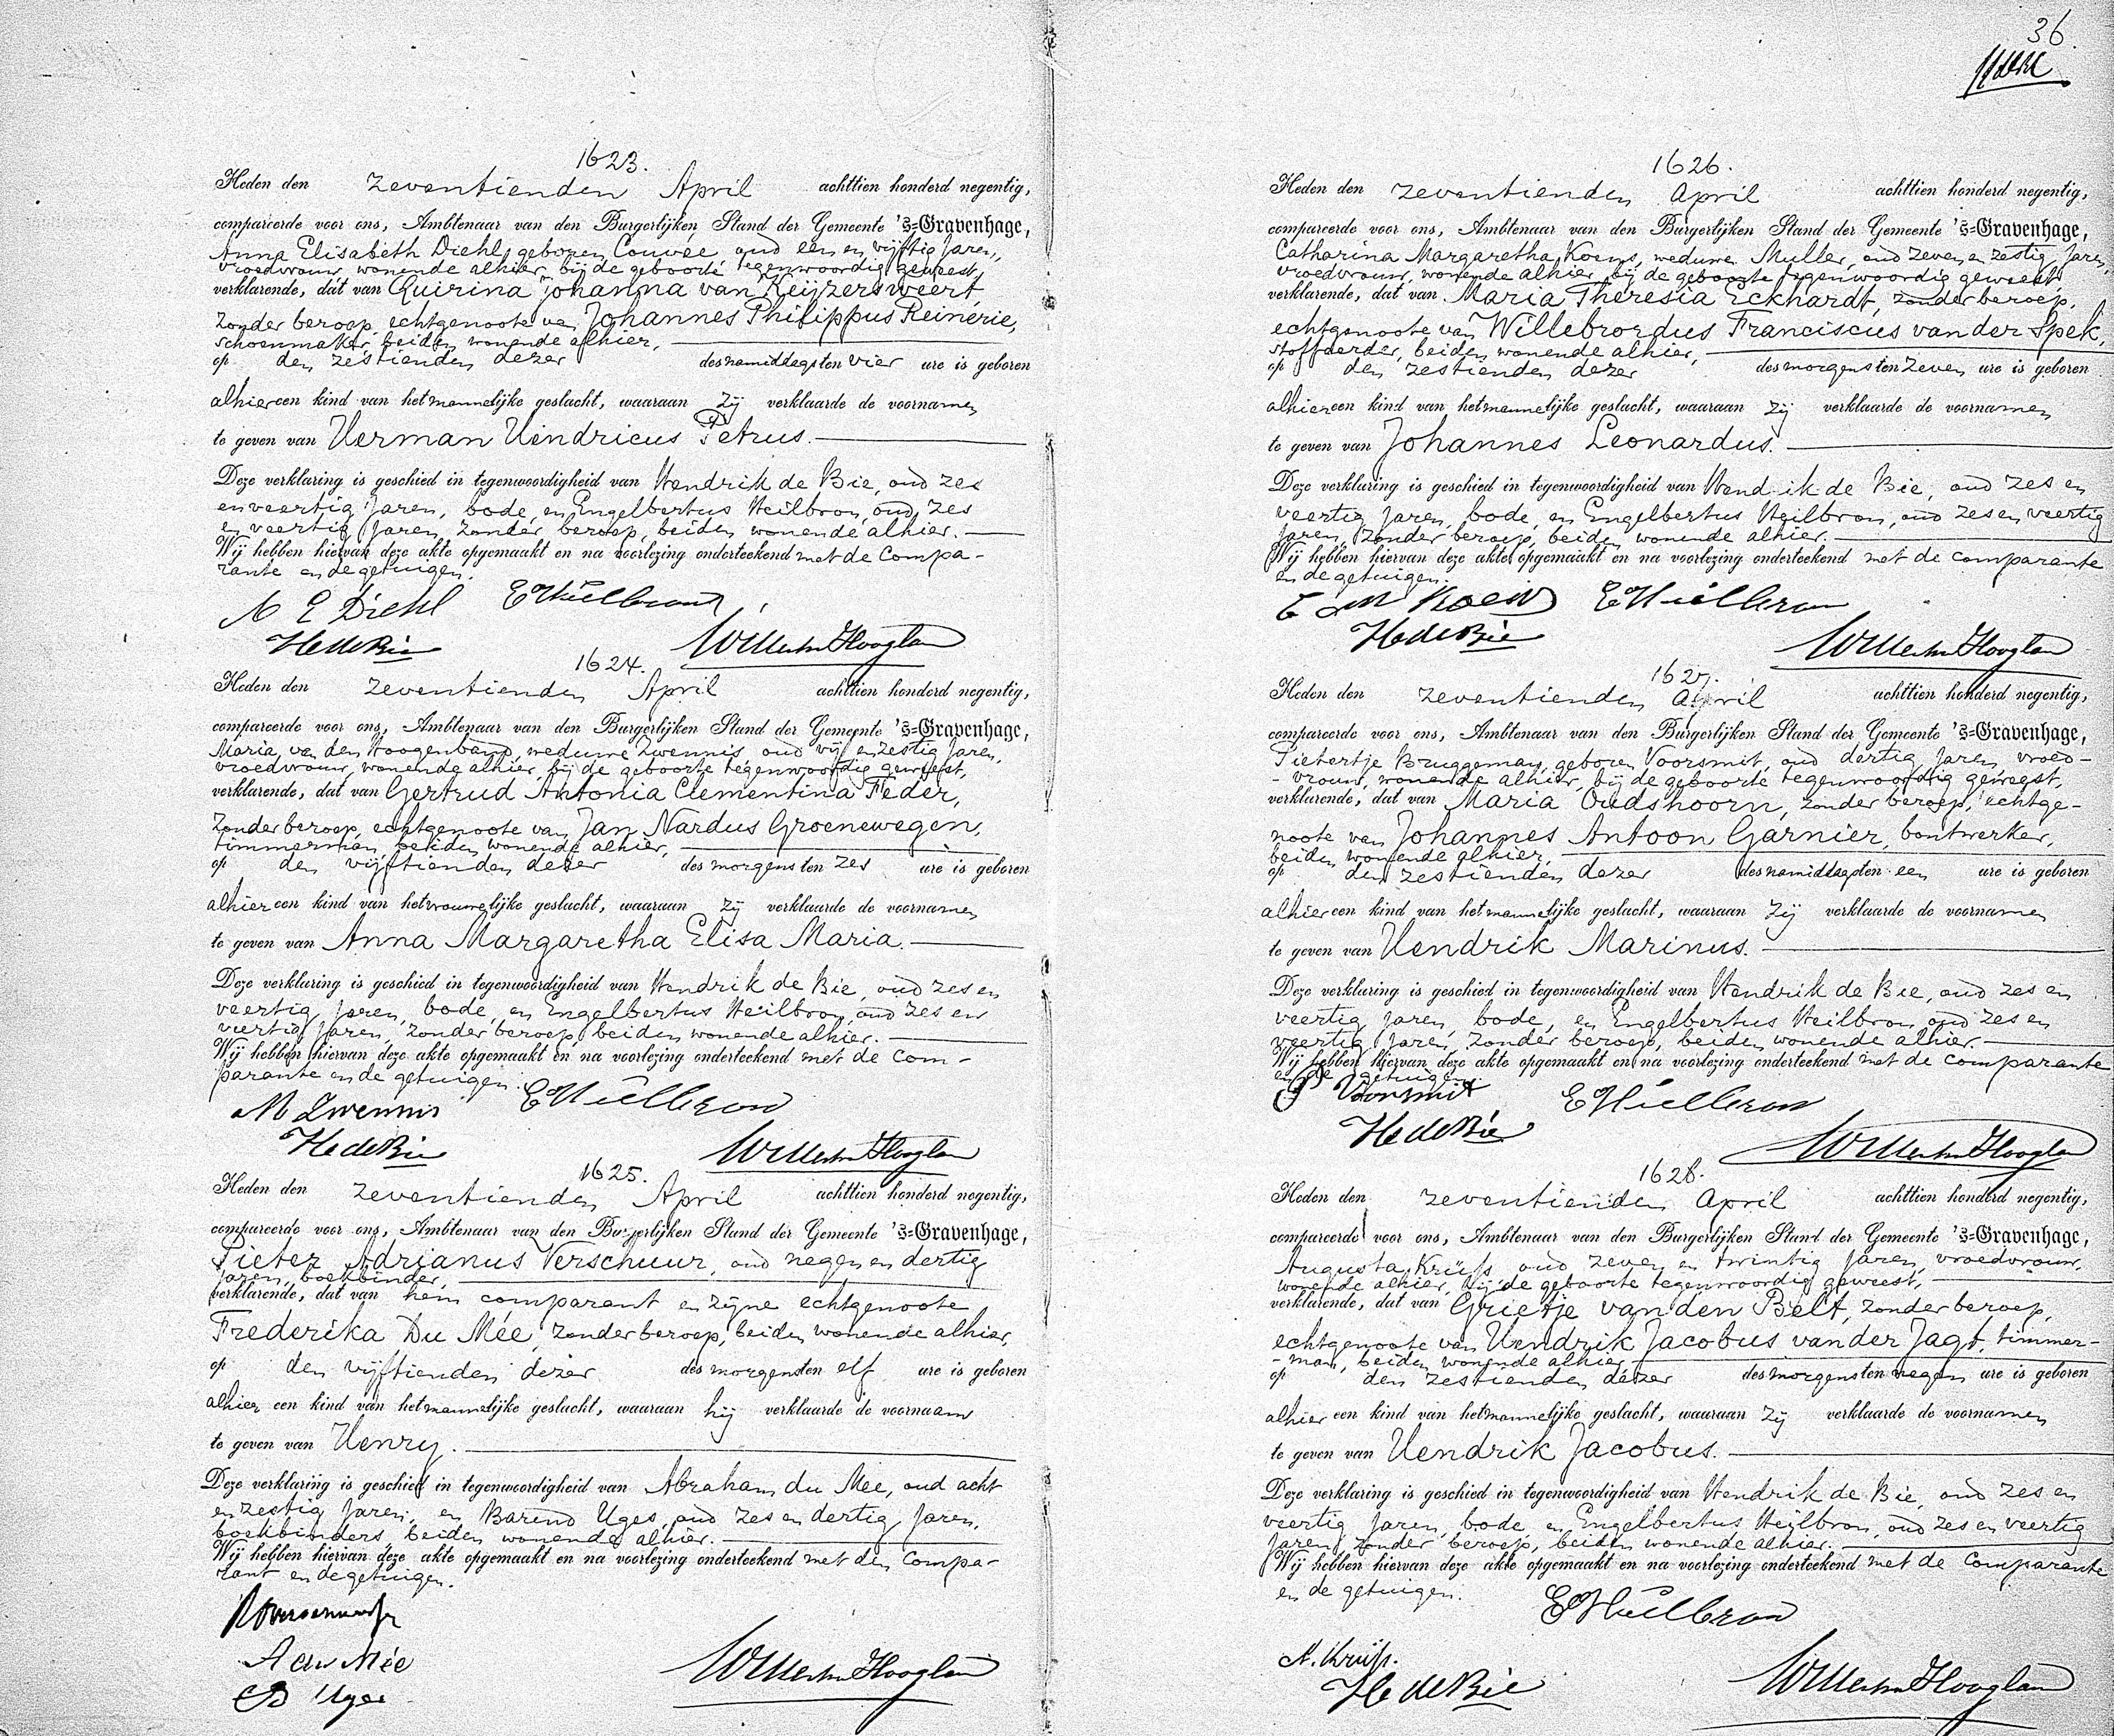 1623.
Heden den zeventienden April achttien honderd negentig,
compareerde voor ons, Ambtenaar van den Burgerlijken Stand der Gemeente 's-Gravenhage,
Anna Elisabeth Diehl, geboren Couvée, oud een en vijftig Jaren,
vroedvrouw, wonende alhier, bij de geboorte tegenwoordig geweest,
verklarende, dat van Quirina Johanna van Keijzersweert,
zonder beroep, echtgenoote van Johannes Philippus Reinerie,
schoenmaker, beiden wonende alhier,
op den zestienden dezer des namiddags ten vier ure is geboren
alhier een kind van het mannelijke geslacht, waaraan zij verklaarde de voornamen
te geven van Herman Hendricus Petrus.
Deze verklaring is geschied in tegenwoordigheid van Hendrik de Bie, oud zes
en veertig Jaren, bode, en Engelbertus Heilbron, oud zes
en veertig Jaren, zonder beroep, beiden wonende alhier.
Wij hebben hiervan deze akte opgemaakt en na voorlezing onderteekend met de compa-
rante en de getuigen.
A E Diehl EHeilbron
HdeBie
1624.
Heden den zeventienden April achttien honderd negentig,
compareerde voor ons, Ambtenaar van den Burgerlijken Stand der Gemeente 's-Gravenhage,
Maria van den Hoogenband, weduwe Zwennis, oud vijf en zestig Jaren,
vroedvrouw, wonende alhier, bij de geboorte tegenwoordig geweest,
verklarende, dat van Gertrud Antonia Clementina Feder,
zonder beroep, echtgenoote van Jan Nardus Groenewegen,
timmerman, beiden wonende alhier,
op den vijftienden dezer des morgens ten zes ure is geboren
alhier een kind van het vrouwelijke geslacht, waaraan zij verklaarde de voornamen
te geven van Anna Margaretha Elisa Maria.
Deze verklaring is geschied in tegenwoordigheid van Hendrik de Bie, oud zes en
veertig Jaren, bode, en Engelbertus Heilbron, oud zes en
veertig Jaren, zonder beroep, beiden wonende alhier.
Wij hebben hiervan deze akte opgemaakt en na voorlezing onderteekend met de com-
parante en de getuigen.
M Zwennis EHeilbron
HdeBie
1625.
Heden den zeventienden April achttien honderd negentig,
compareerde voor ons, Ambtenaar van den Burgerlijken Stand der Gemeente 's-Gravenhage,
Pieter Adrianus Verschuur, oud negen en dertig
Jaren, boekbinder,
verklarende, dat van hem comparant en zijne echtgenoote
Frederika Du Mée, zonder beroep, beiden wonende alhier,
op den vijftienden dezer des morgens ten elf ure is geboren
alhier een kind van het mannelijke geslacht, waaraan hij verklaarde de voornaam
te geven van Henry.
Deze verklaring is geschied in tegenwoordigheid van Abraham du Mee, oud acht
en zestig Jaren, en Barend Uges, oud zes en dertig Jaren,
boekbinders, beiden wonende alhier.
Wij hebben hiervan deze akte opgemaakt en na voorlezing onderteekend met den compa-
rant en de getuigen.
A du Mée
B Uges
36.
1626.
Heden den zeventienden April achttien honderd negentig,
compareerde voor ons, Ambtenaar van den Burgerlijken Stand der Gemeente 's-Gravenhage,
Catharina Margaretha Koens, weduwe Muller, oud zeven en zestig Jaren,
vroedvrouw, wonende alhier, bij de geboorte tegenwoordig geweest,
verklarende, dat van Maria Theresia Eckhardt, zonder beroep,
echtgenoote van Willebrordus Franciscus van der Spek,
stoffeerder, beiden wonende alhier,
op den zestienden dezer des morgens ten zeven ure is geboren
alhier een kind van het mannelijke geslacht, waaraan zij verklaarde de voornamen
te geven van Johannes Leonardus.
Deze verklaring is geschied in tegenwoordigheid van Hendrik de Bie, oud zes en
veertig Jaren, bode, en Engelbertus Heilbron, oud zes en veertig
Jaren, zonder beroep, beiden wonende alhier.
Wij hebben hiervan deze akte opgemaakt en na voorlezing onderteekend met de comparante
en de getuigen.
EHeilbron
HdeBie
1627.
Heden den zeventienden April achttien honderd negentig,
compareerde voor ons, Ambtenaar van den Burgerlijken Stand der Gemeente 's-Gravenhage,
Pietertje Bruggeman, geboren Voorsmit, oud dertig Jaren, vroed-
-vrouw, wonende alhier, bij de geboorte tegenwoordig geweest,
verklarende, dat van Maria Oudshoorn, zonder beroep, echtge-
noote van Johannes Antoon Garnier, bontwerker,
beiden wonende alhier,
op den zestienden dezer des namiddags ten een ure is geboren
alhier een kind van het mannelijke geslacht, waaraan zij verklaarde de voornamen
te geven van Hendrik Marinus.
Deze verklaring is geschied in tegenwoordigheid van Hendrik de Bie, oud zes en
veertig Jaren, bode, en Engelbertus Heilbron, oud zes en
veertig Jaren, zonder beroep, beiden wonende alhier.
Wij hebben hiervan deze akte opgemaakt en na voorlezing onderteekend met de comparante
en de getuigen.
P Voorsmit EHeilbron
HdeBie
1628.
Heden den zeventienden April achttien honderd negentig,
compareerde voor ons, Ambtenaar van den Burgerlijken Stand der Gemeente 's-Gravenhage,
Augusta Krüss, oud zeven en twintig Jaren, vroedvrouw,
wonende alhier, bij de geboorte tegenwoordig geweest,
verklarende, dat van Grietje van den Belt, zonder beroep,
echtgenoote van Hendrik Jacobus van der Jagt, timmer-
-man, beiden wonende alhier,
op den zestienden dezer des morgens ten negen ure is geboren
alhier een kind van het mannelijke geslacht, waaraan zij verklaarde de voornamen
te geven van Hendrik Jacobus.
Deze verklaring is geschied in tegenwoordigheid van Hendrik de Bie, oud zes en
veertig Jaren, bode, en Engelbertus Heilbron, oud zes en veertig
Jaren, zonder beroep, beiden wonende alhier.
Wij hebben hiervan deze akte opgemaakt en na voorlezing onderteekend met de comparante
en de getuigen.
EHeilbron
A. Krüss.
HdeBie